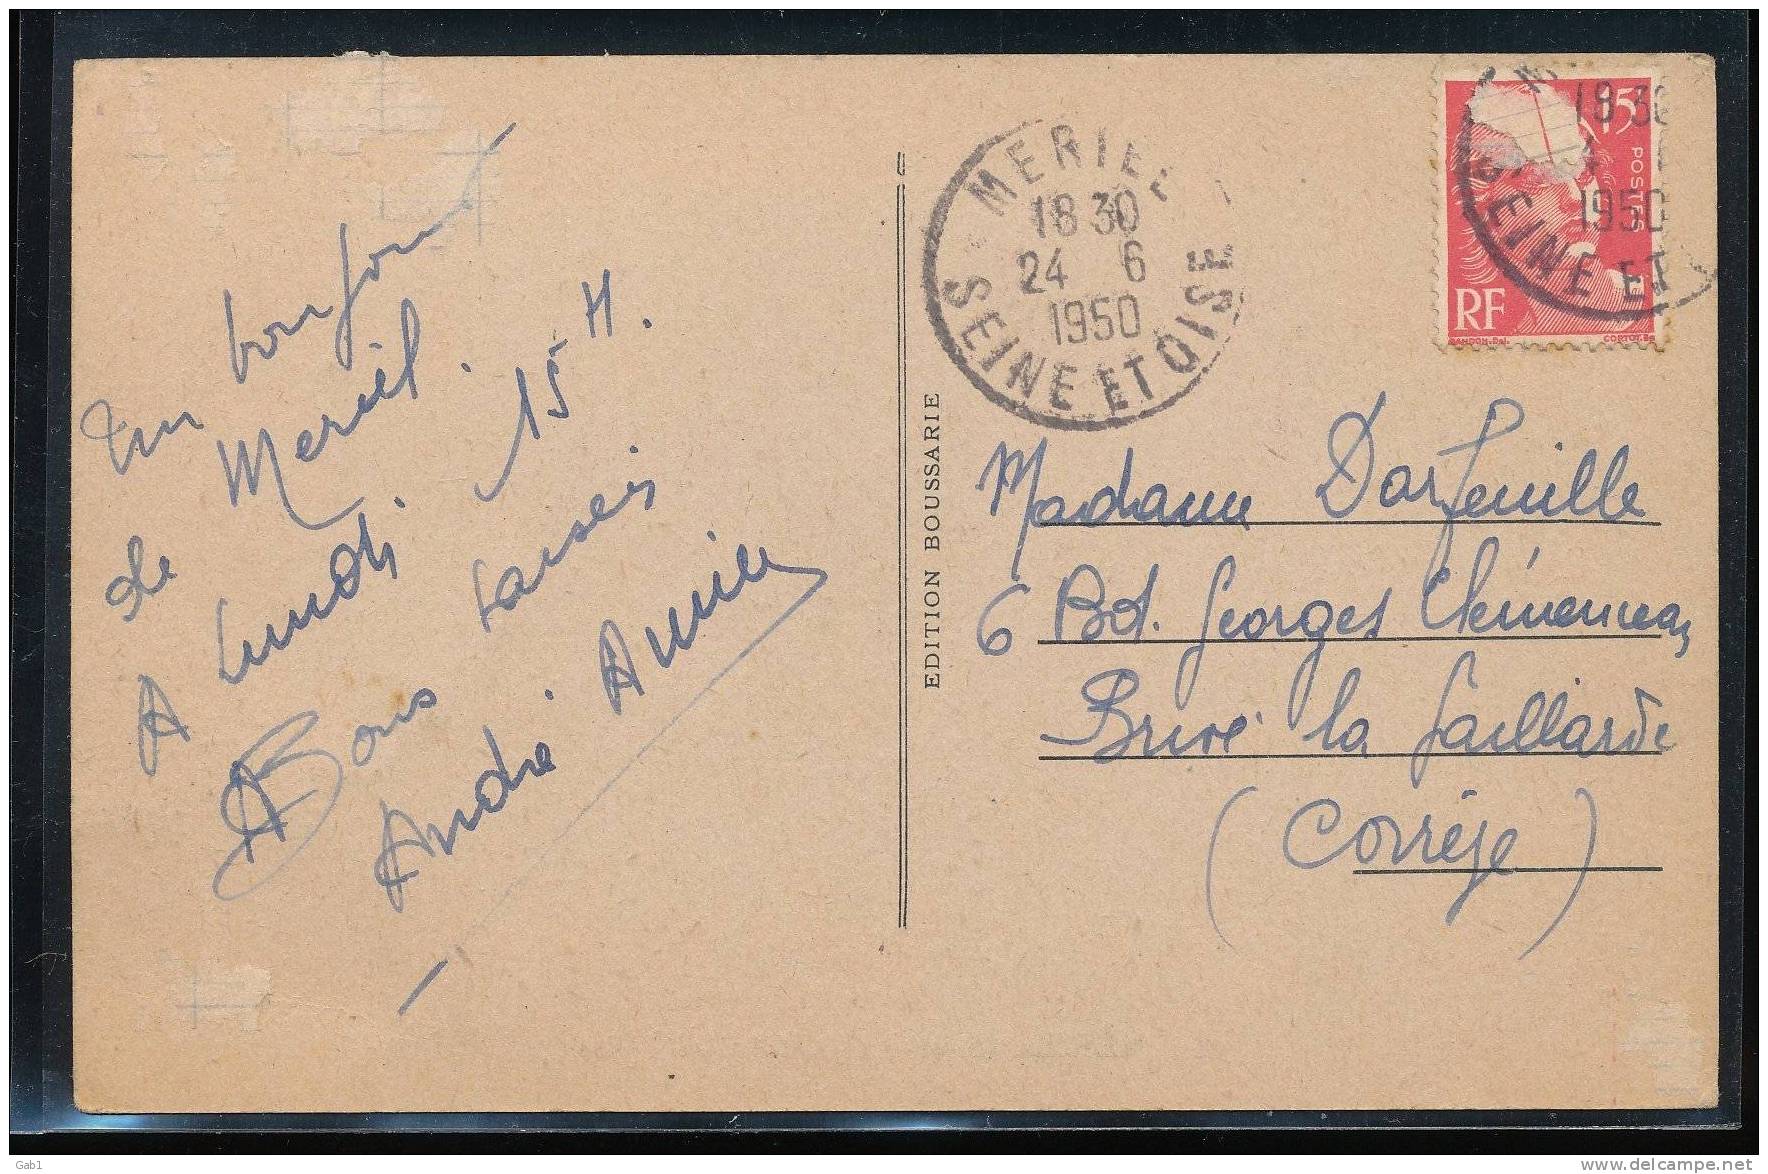 Un bonjour
de Meriel.
A Lundi. 15 H.
Bons baisers
André
MERIEL
18 30
24 6
1950
SEINE ET OISE
18 30
1950
SEINE ET
15
POSTES
RF
GANDON.Del.
CORTOT.
EDITION BOUSSARIE
Madame Darfeuille
6 Bd. Georges Clémenceau
Brive la Gaillarde
(Corrèze)
Gab1
www.delcampe.net